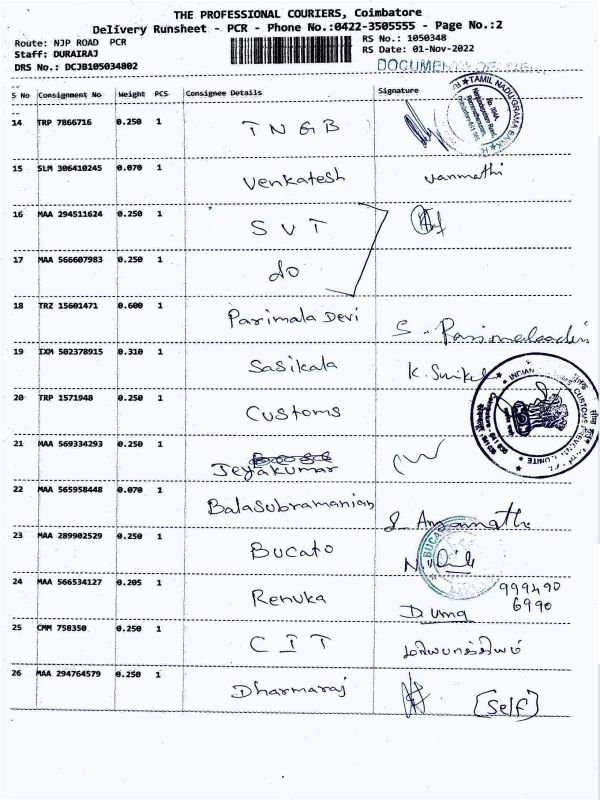 THE PROFESSIONAL COURIERS, Coimbatore
Delivery Runsheet - PCR - Phone No.:0422-3505555 - Page No.:2
Route: NJP ROAD PCR
RS No.: 1050348
Staff: DURAIRAJ
RS Date: 01-Nov-2022
DRS No.: DCJB105034802
S No Consignment No Weight PCS Consignee Details Signature
14 TRP 7866716 0.250 1 TNGB
TAMIL NADU GRAMA BANK
15 SLM 306410245 0.070 1 Venkatesh vanmathi
16 MAA 294511624 0.250 1 SVT
17 MAA 566607983 0.250 1 do
18 TRZ 15601471 0.600 1 Parimala Devi
19 IXM 502378915 0.310 1 Sasikala
20 TRP 1571948 0.250 1 Customs
21 MAA 569334293 0.250 1 Jeyakumar
22 MAA 565958448 0.070 1 Balasubramanian
23 MAA 289902529 0.250 1 Bucato
24 MAA 566534127 0.205 1 Renuka D. Uma 999490
6990
25 CMM 758350 0.250 1 CIT
26 MAA 294764579 0.250 1 Dharmaraj [Self]